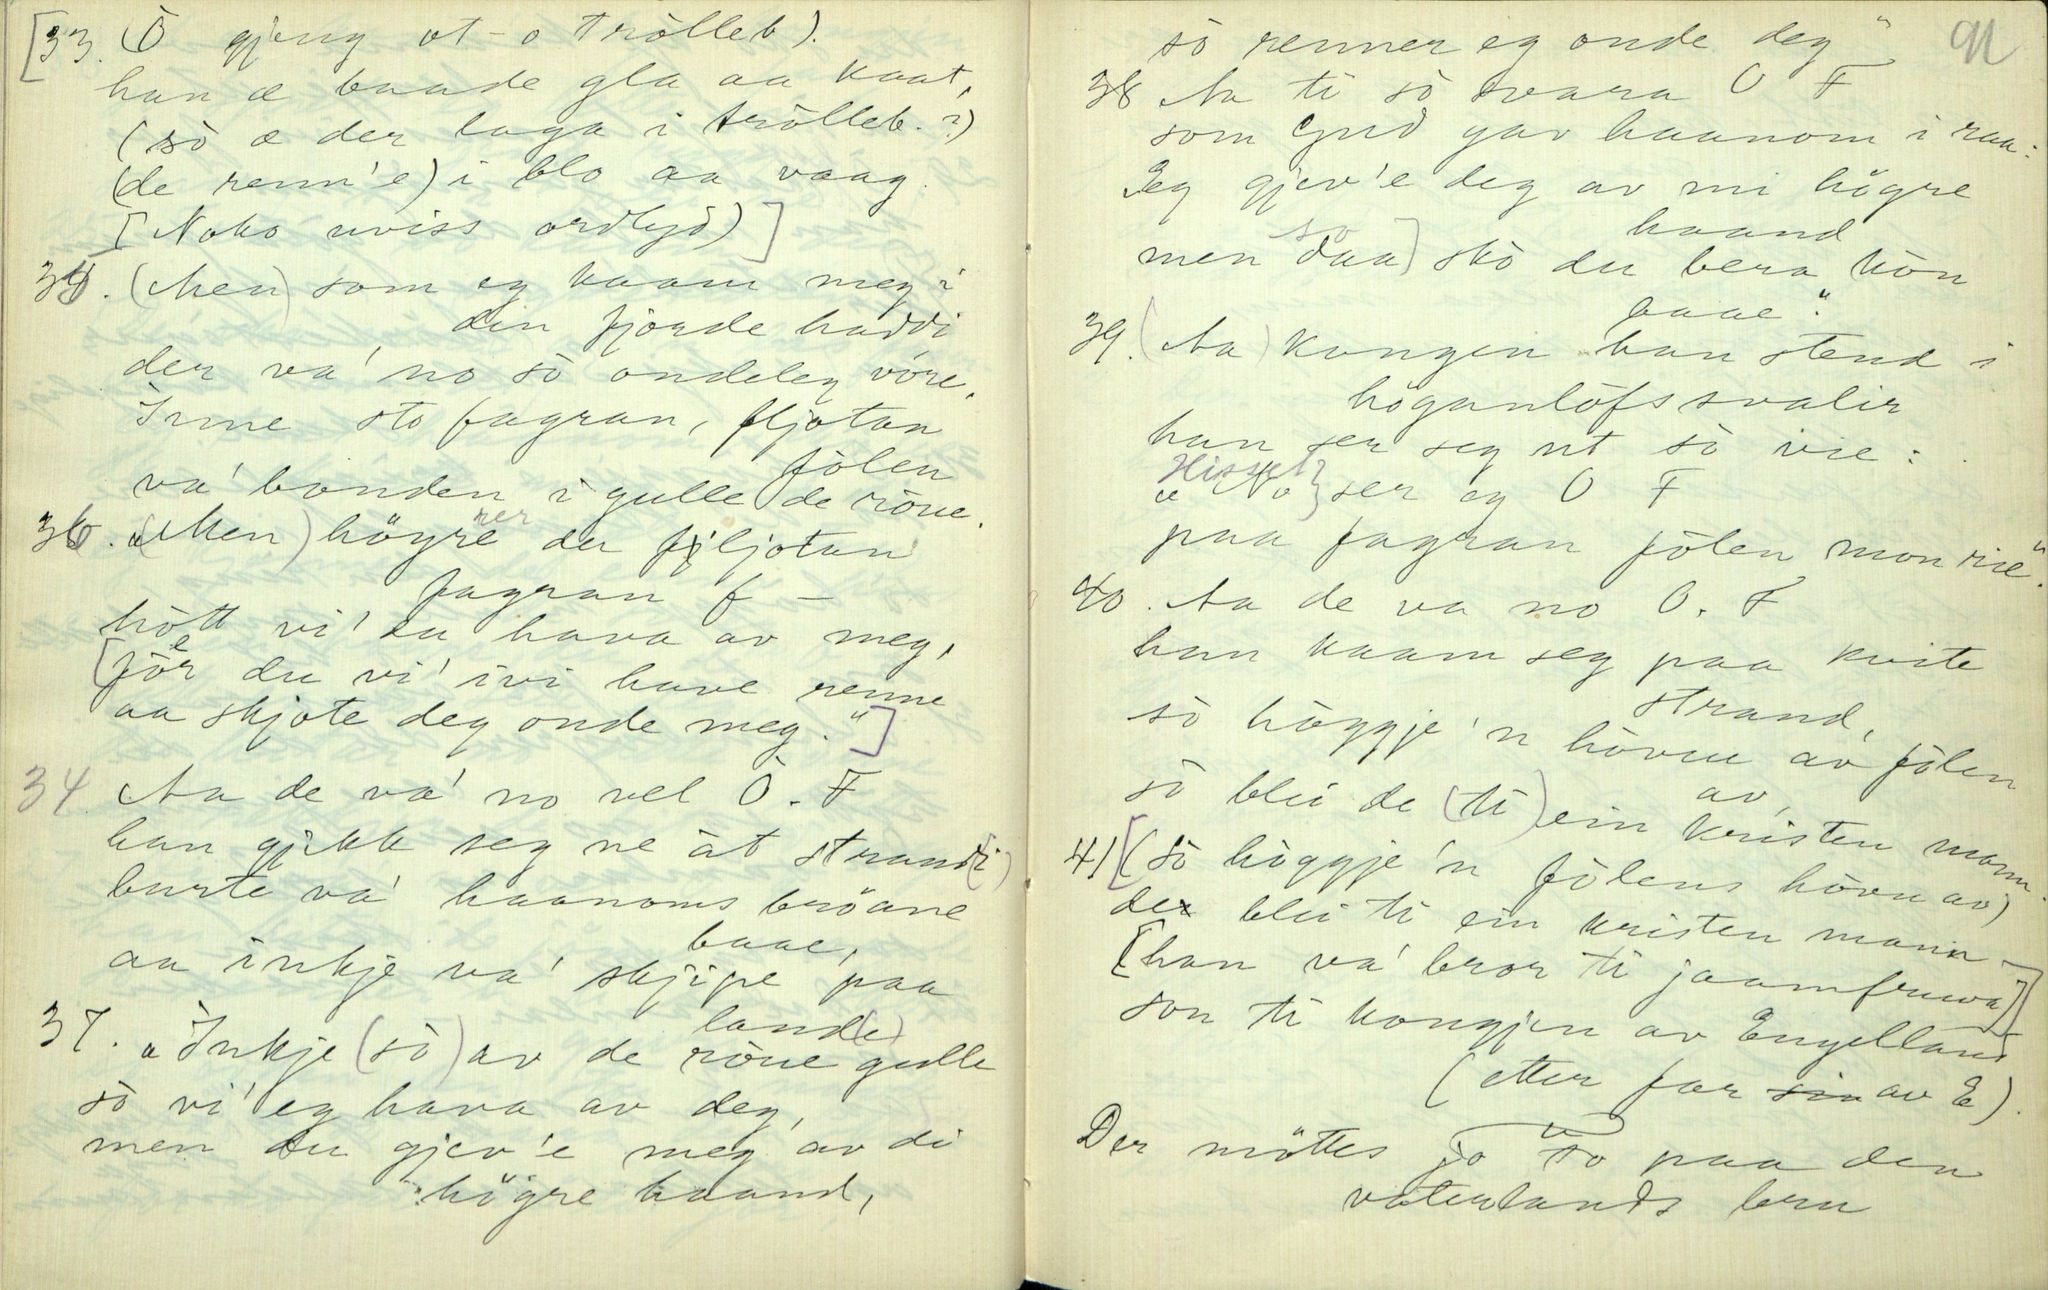 [33. (Ò gjeng ut o trölleb).
han æ baade gla aa kaat,
(sò æ der laga i trölleb.?)
(de renn'e) i blo aa vaag.
[Noko uviss ordlyd)]
34. (Men) som eg kaam meg i
den fjorde haddi
der va' no sò ondeleg vóre,
Irme sto fagran, fljotan
fòlen
va' bonden i gulle de röue.
36. "(Men) högre der fljotan
ner
fagran f –
hòtt vi' du hava av meg,
[för du vi' ivi have renne
e
aa skjote deg onde meg."]
34 Aa de va' no vel Ò. F
han gjikk seg ne åt strand(i)
burte va' haanoms bröane
baae,
aa inkje va' skjipe paa
land(e)
37. "Inkje (sò) av de röue gulle
sò vi' eg hava av deg,
men du gjev'e meg av di
högre haand,
91
sò renner eg onde deg"
38 Aa ti sò svara O F
som Gud gav haanom i raa:
Eg gjev'e deg av mi högre
haand
so
men daa] skò du bera kòn
baae."
39. (Aa) kongen han stend i
höganlofssvalir
han ser seg ut sò vie:
Hisset
"No} ser eg O F
paa fagran fòlen mon rie".
40. Aa de va no O. F
han kaam seg paa kvite
strand,
sò höggje'n hovue av fòlen
av,
sò blei de (ti) ein kristen mann.
41 [(sò höggje'n fòlens hovu av)
de blei ti ein kristen mann
[han va' bror ti jaamfruva]]
son ti kongjen av Engelland
(etter far av E).
Der möttes jo to paa den
vaterlands bru